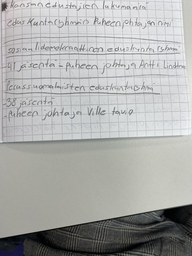 Kansan edustajien lukumäärä
edus kuntaryhmän Puheenjohtajan nimi
sosiaalidemokraattinen eduskunta ryhmä
41 jäsentä - puheen johtaja Antti Lindtman
Perussuomalaisten eduskuntaryhmä
-38 jäsentä
-puheen johtaja Ville tavio